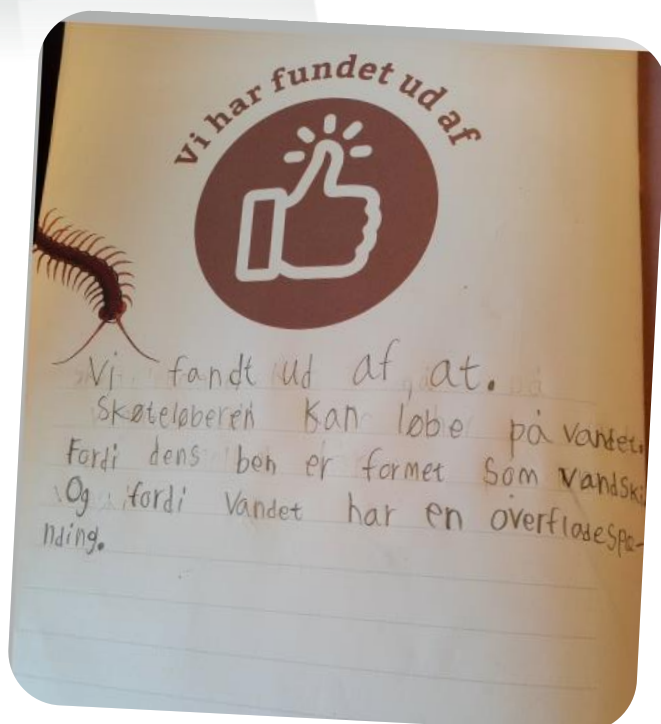 Vi har fundet ud af
Vi fandt ud af at.
Skøteløberen kan løbe på vandet.
Fordi dens ben er formet som vandski
Og fordi vandet har en overfladespæ-
nding.